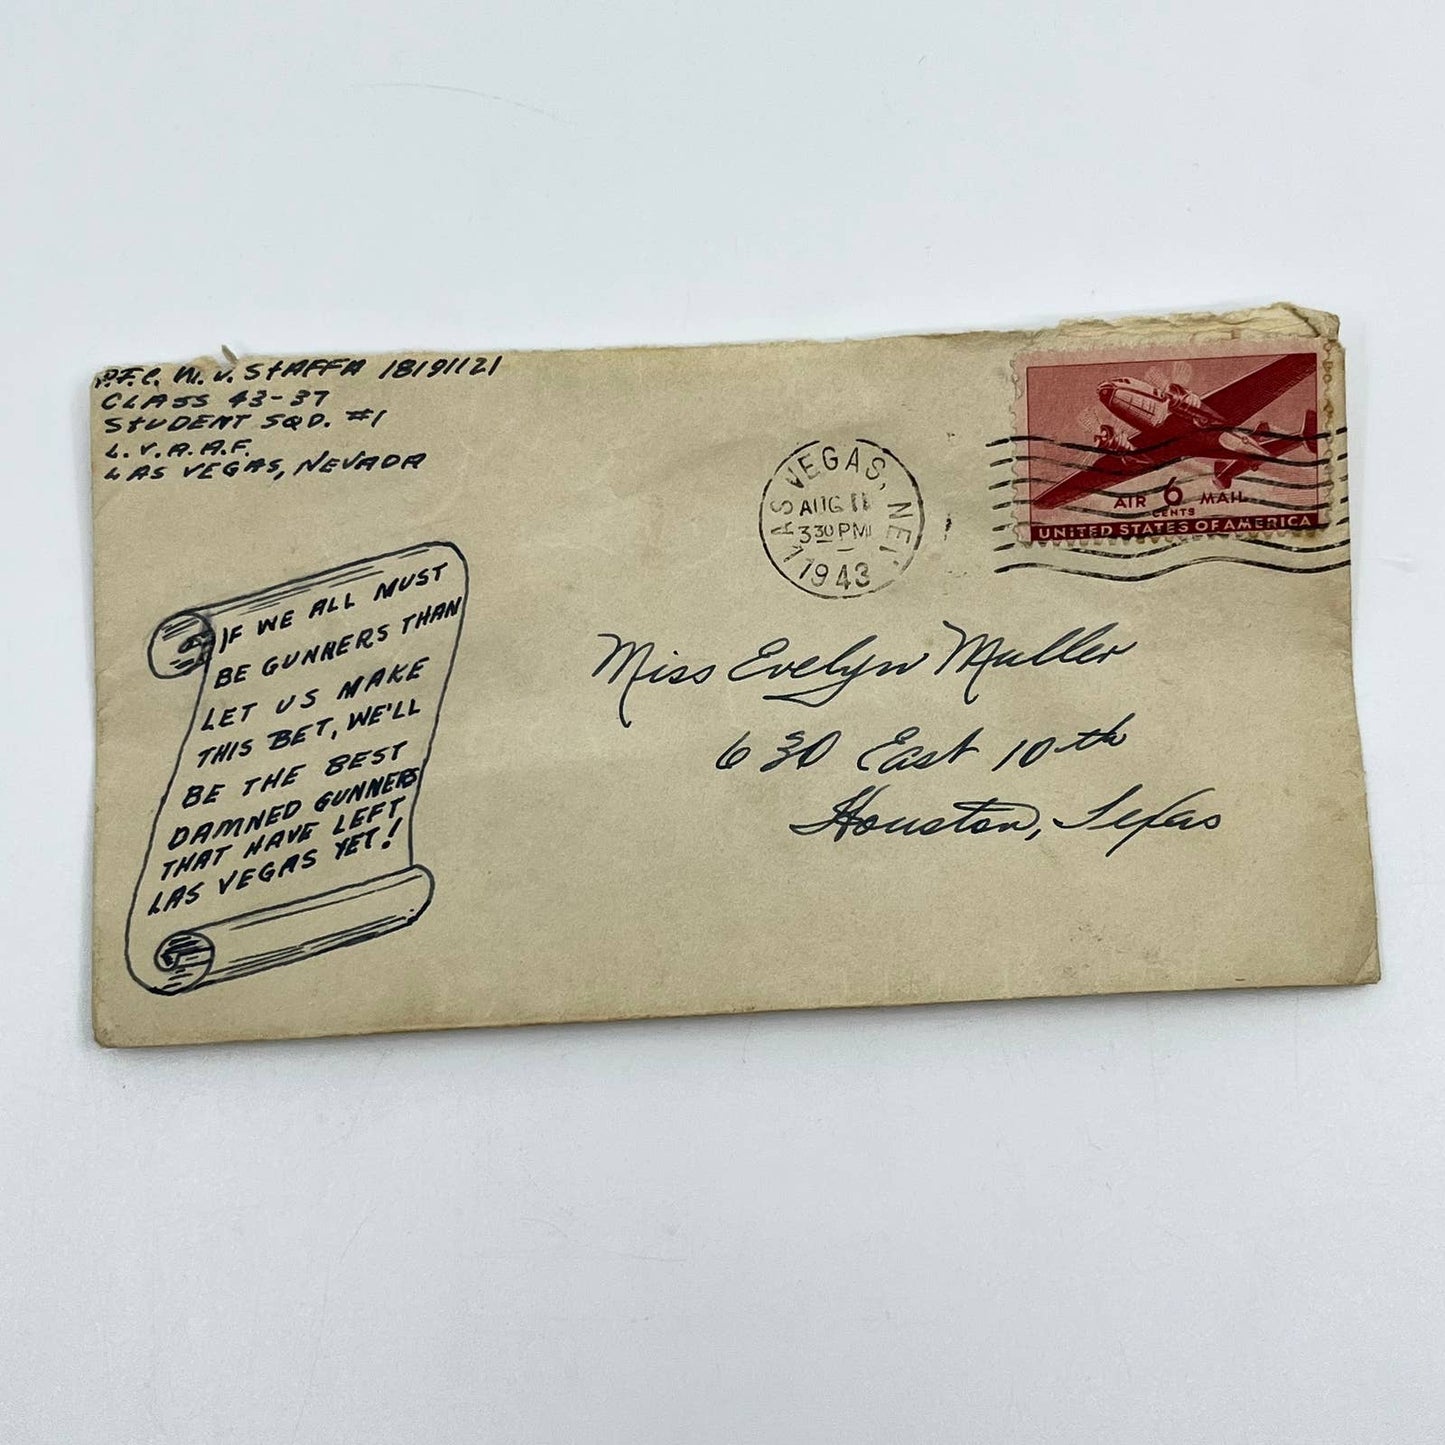 P.F.C. W. J. STAFFA 18191121
CLASS 43-37
STUDENT SQD. #1
L. V. A. A. F.
LAS VEGAS, NEVADA
LAS VEGAS, NEV
AUG 11
3 30 PM
1943
AIR 6 MAIL
CENTS
UNITED STATES OF AMERICA
IF WE ALL MUST
BE GUNNERS THAN
LET US MAKE
THIS BET, WE'LL
BE THE BEST
DAMNED GUNNERS
THAT HAVE LEFT
LAS VEGAS YET!
Miss Evelyn Muller
630 East 10th
Houston, Texas